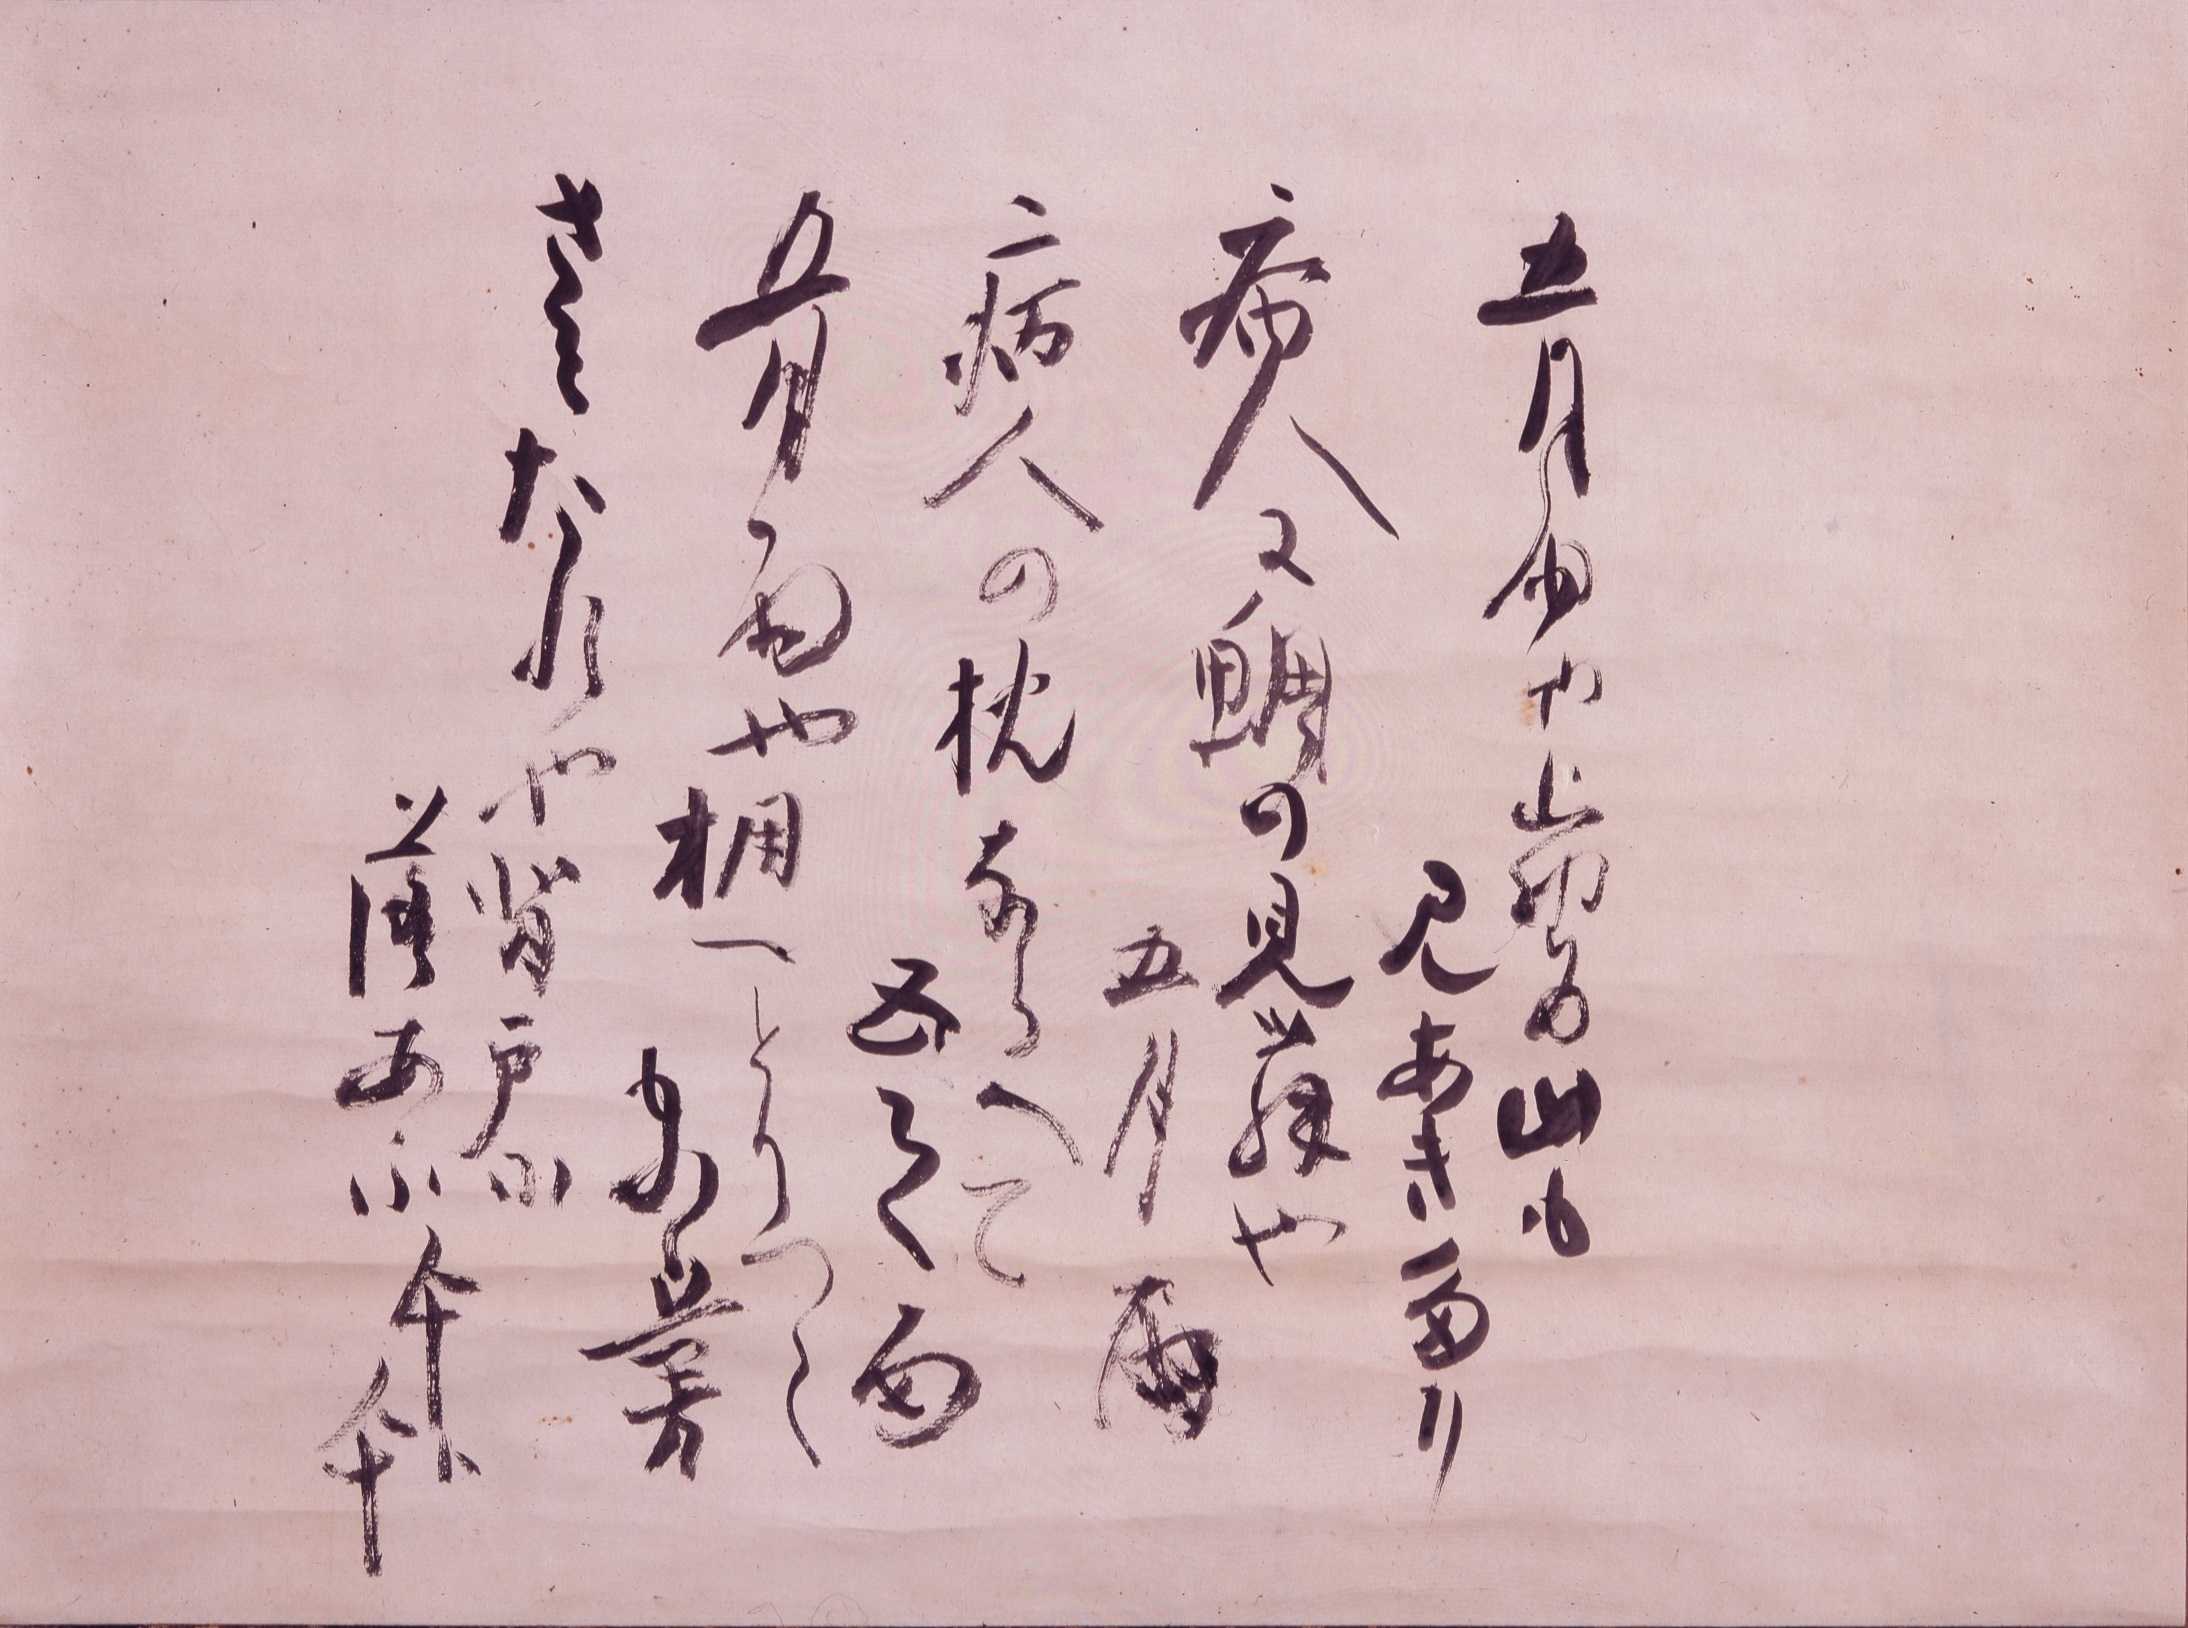 五月雨や上野の山も
見あきたり
病人に鯛の見舞や
五月雨
病人の枕ならへて
五月雨
五月雨や棚へとりつく
ものゝ蔓
さみたれや背戸に
落あふ傘と傘